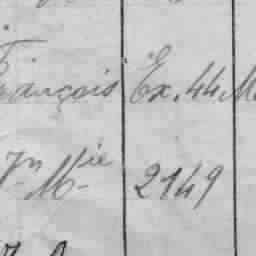 François Ex. 44 M
Jn Mie 2149